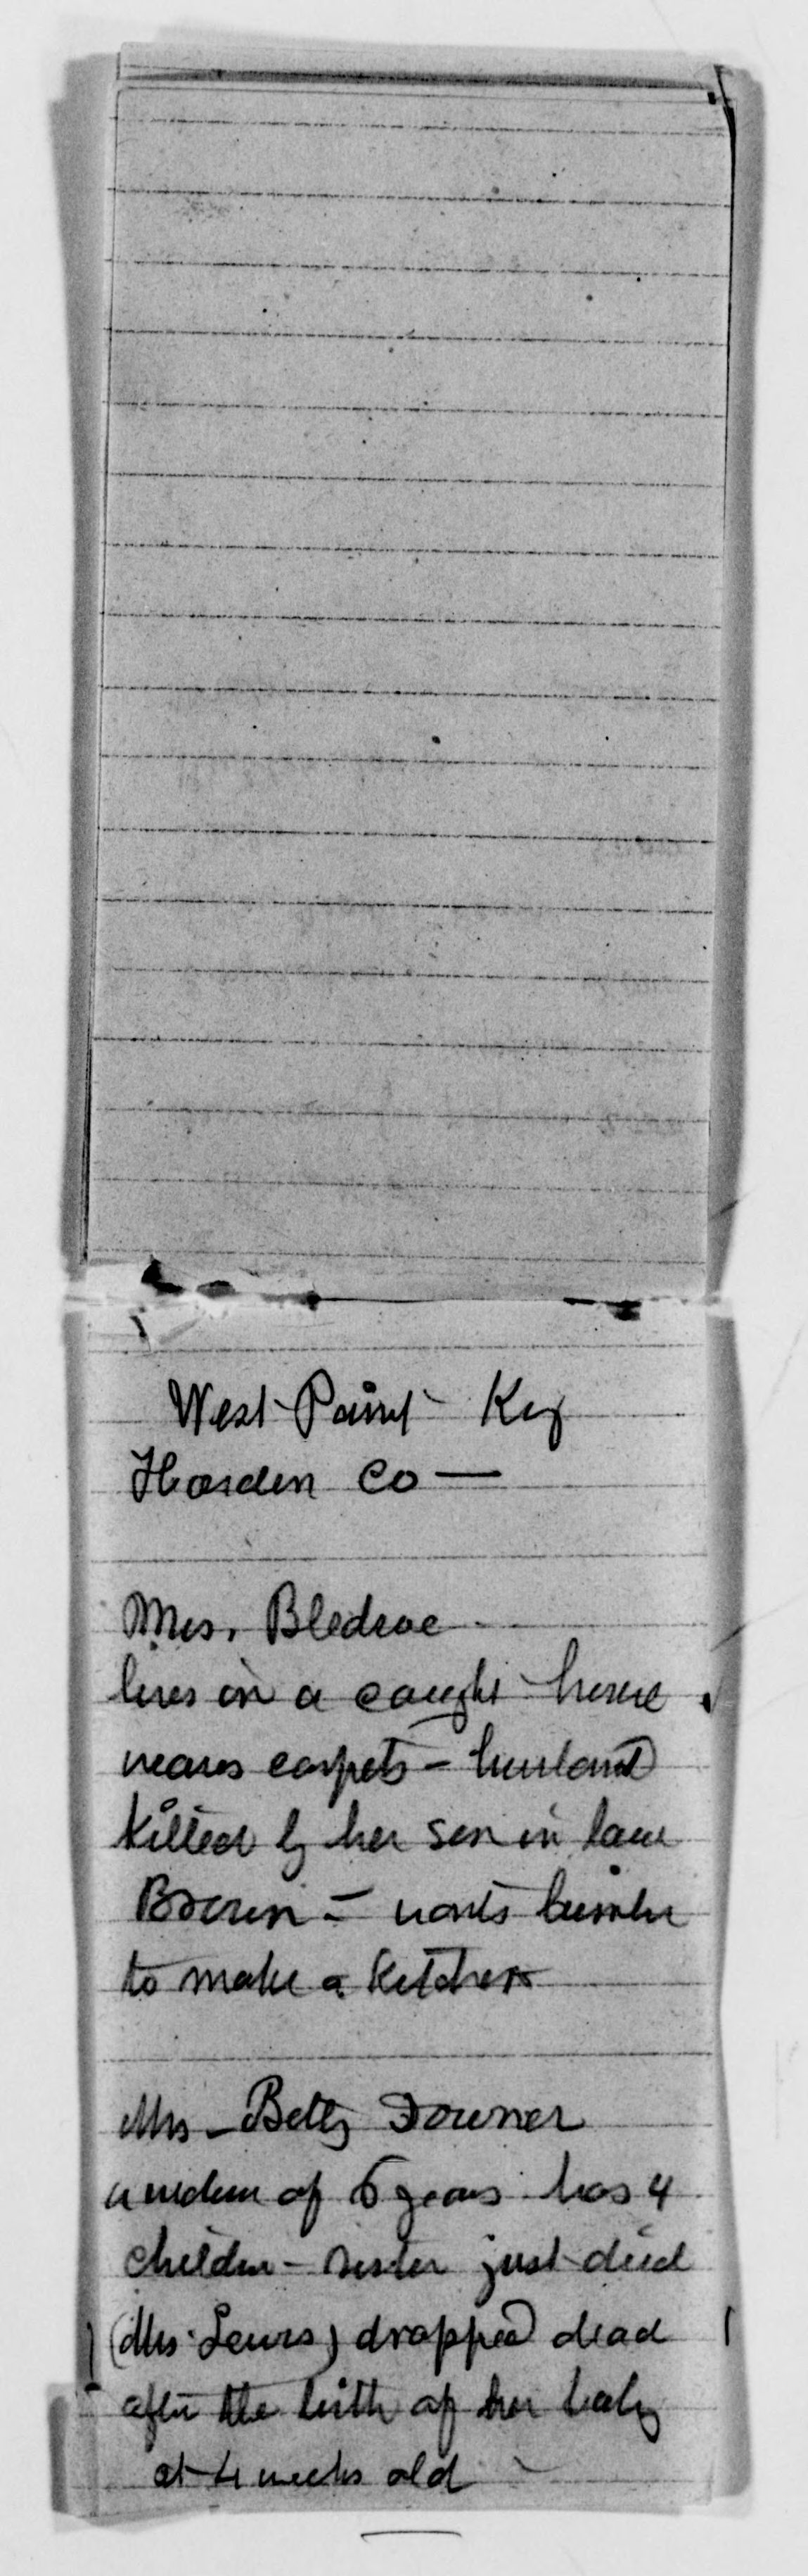 West Point Ky
Harden Co —
Mrs. Bledsoe
lives in a caught house
weaves carpets - husband
killed by her son in law
Brown - wants lumber
to make a kitchen
Mrs - Betty Downer
a widow of 6 years has 4
children - sister just died
(Mrs. Lewis) dropped dead
after the birth of her baby
at 4 weeks old